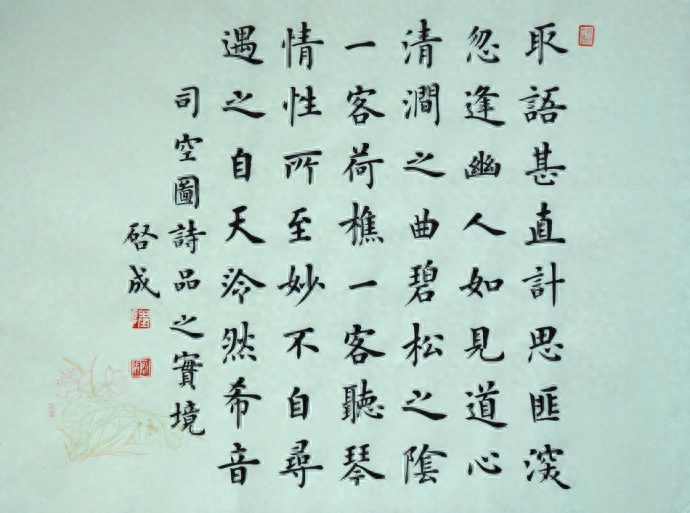 取語甚直計思匪深
忽逢幽人如見道心
清澗之曲碧松之陰
一客荷樵一客聽琴
情性所至妙不自尋
遇之自天泠然希音
司空圖詩品之實境
啓成